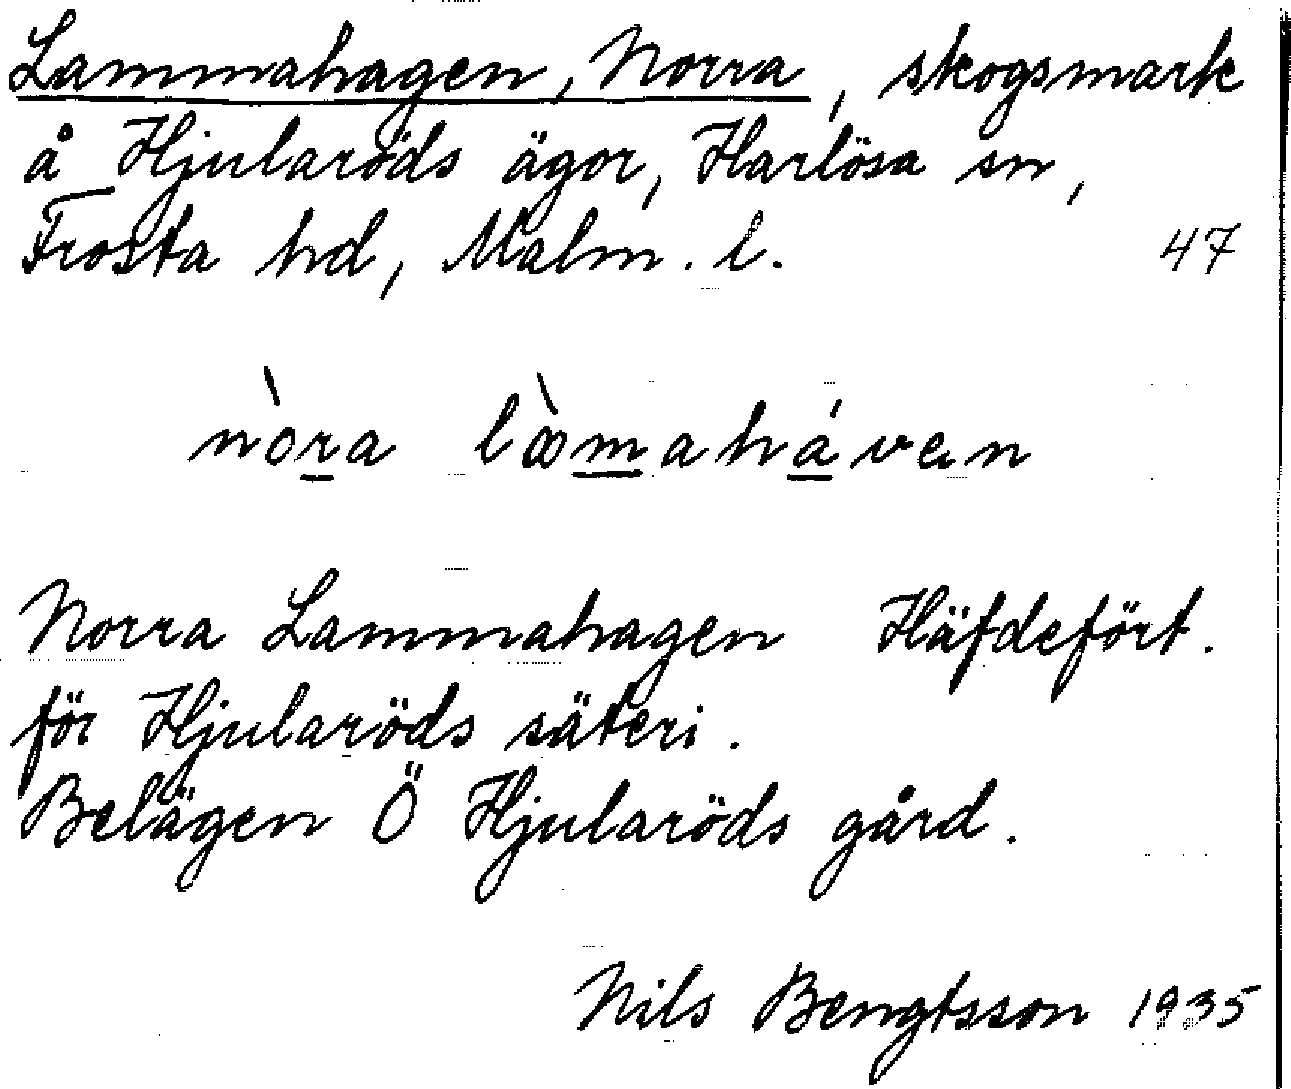 Lammahagen, Norra, skogsmark
å Hjularöds ägor, Harlösa sn,
Frosta hd, Malm. l. 47
nòra lò̀maháven
Norra Lammahagen Häfdefört.
för Hjularöds säteri.
Belägen Ö Hjularöds gård.
Nils Bengtsson 1935